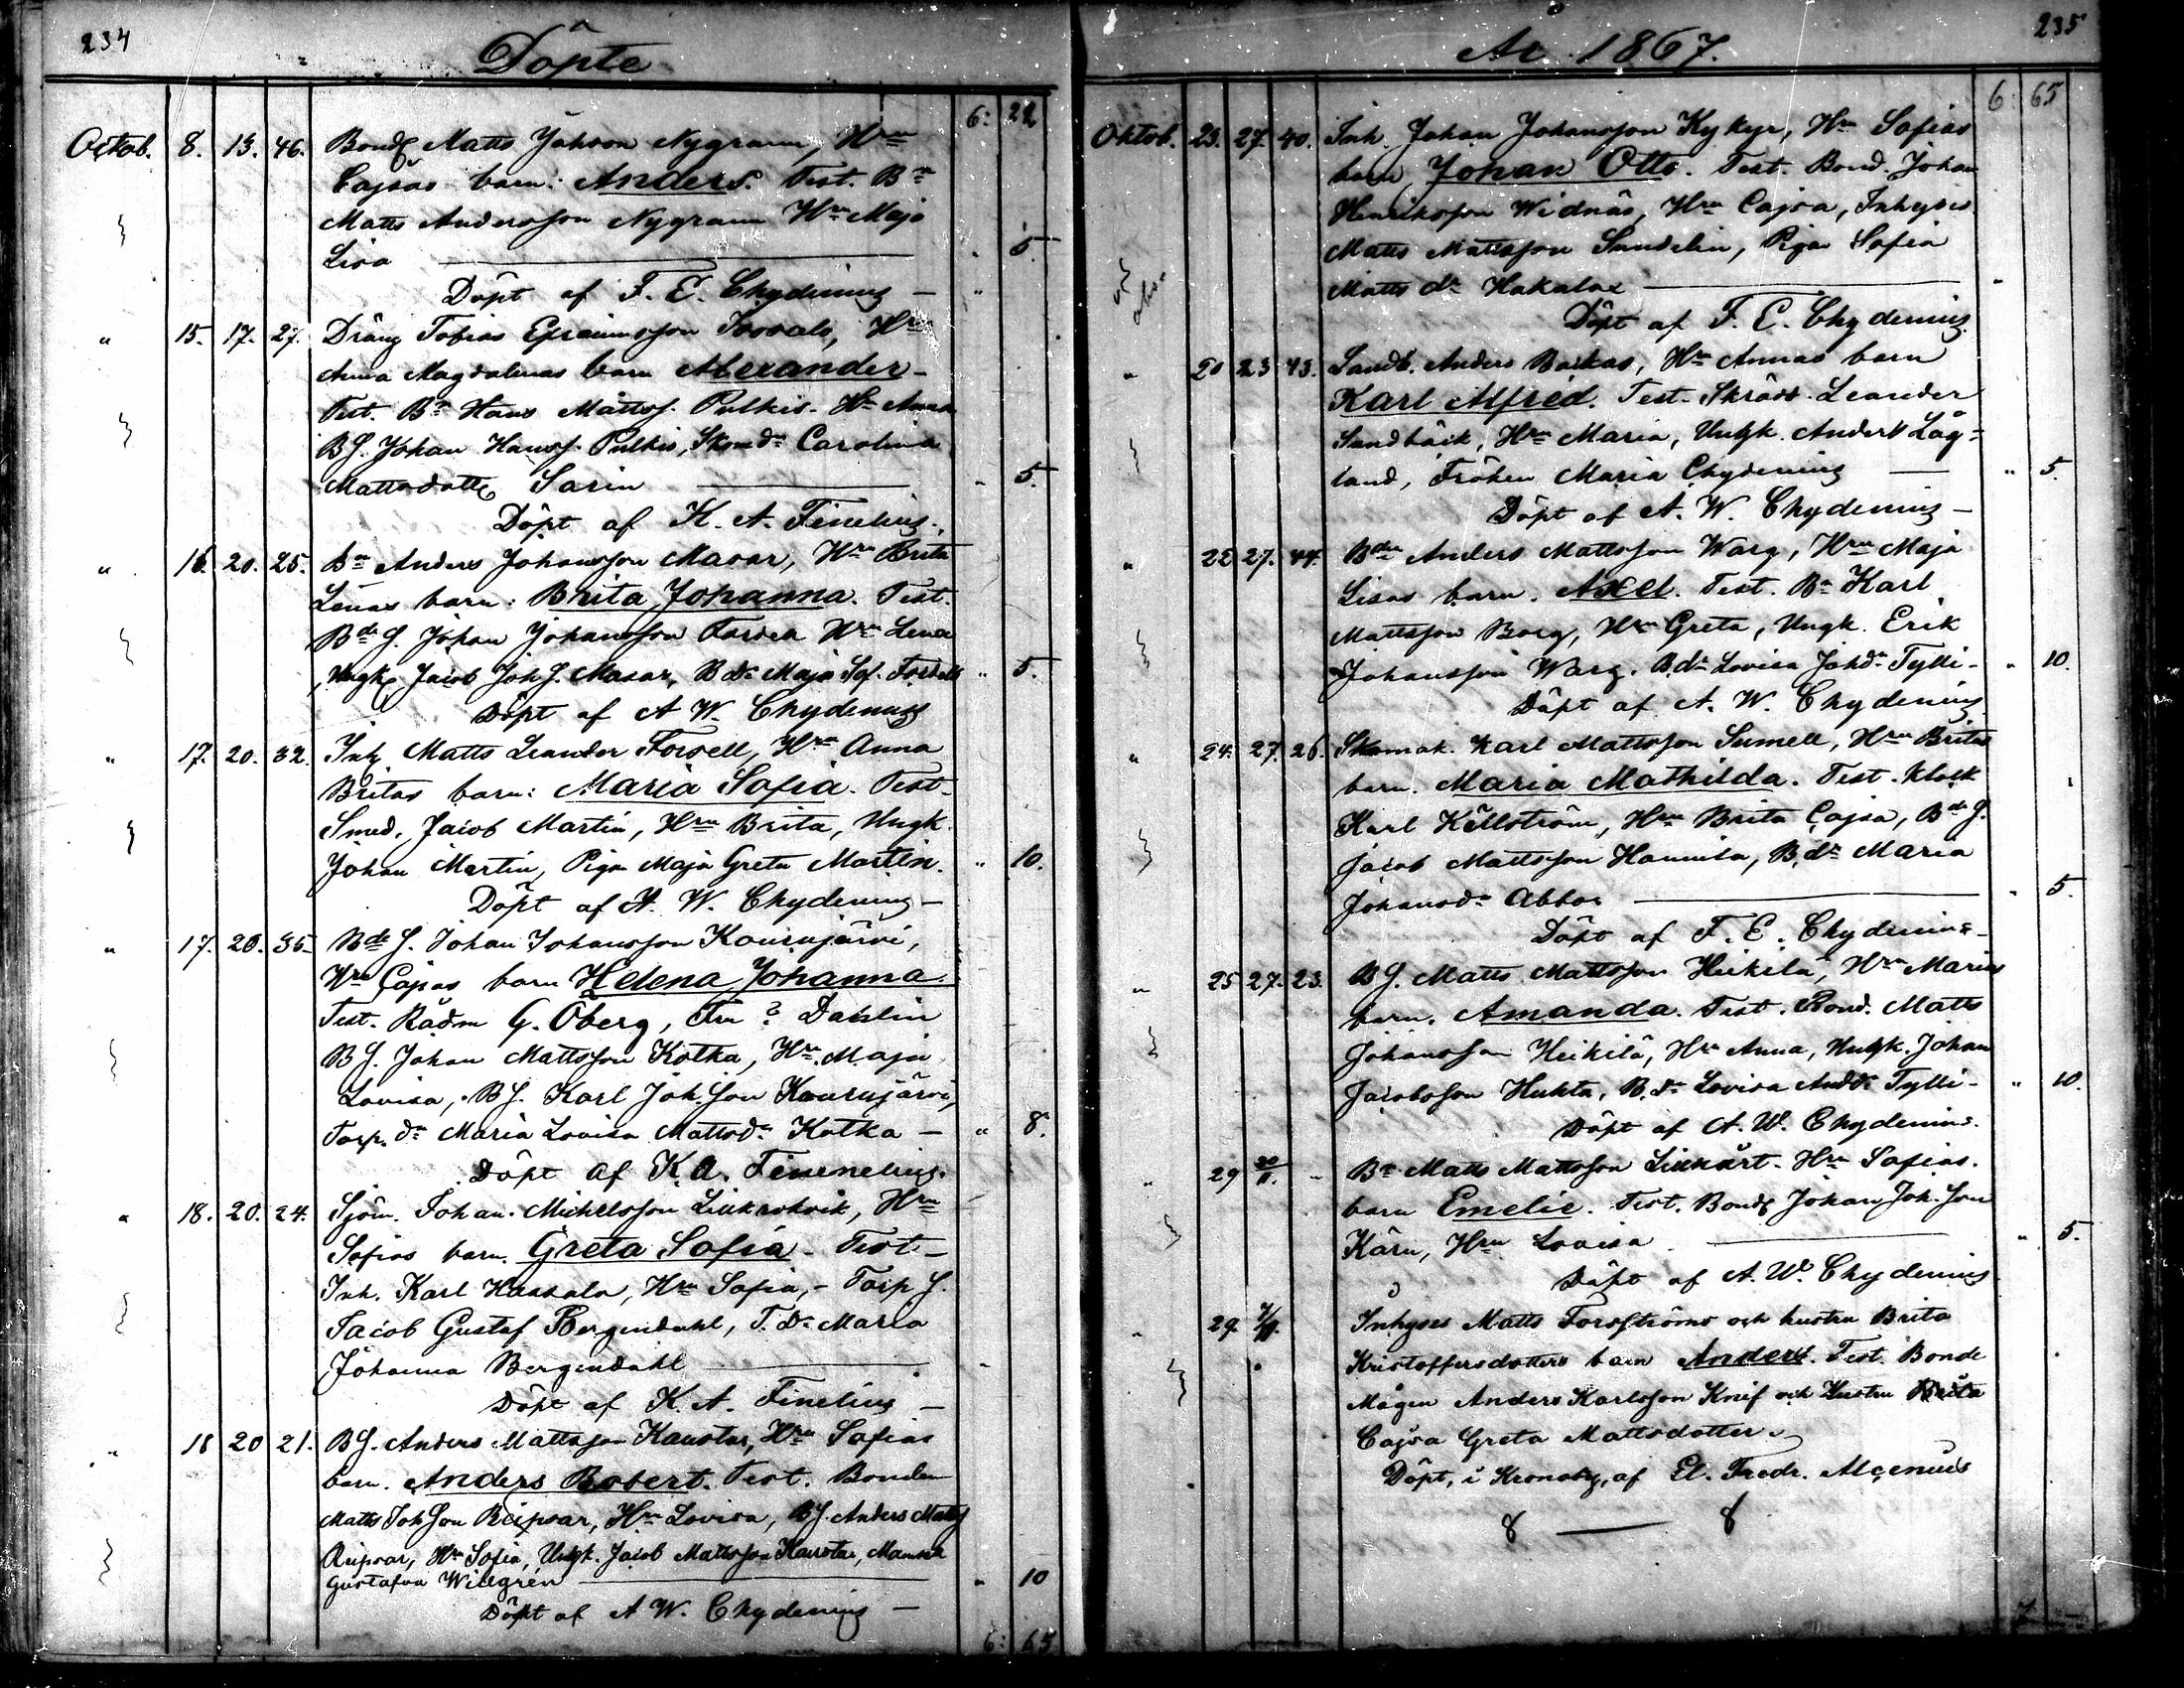 234
Döpte
6: 22
Octob. 8. 13. 46. Bond Matts Johsson Nygrann, Hru
Cajsas barn: Anders. Test. Bn
Matts Andersson Nygrann Hru Maja
Lisa — " 5.
Döpt af F. E. Chydenius — "
" 15. 17. 27. Dräng Tobias Epraimsson Hru
Anna Magdalenas barn Alexander –
Test. Bn Hans Mattss. Pulkis. Hu Anna
B S. Johan Hanss. Pulkis, Skomdr Carolina
Mattsdotte Sarin — " 5.
Döpt af K. A. Finelius.
" 16. 20. 25. Bn Anders Johansson Masar, Hru Brita
Lenas barn: Brita Johanna. Test.
Bde S. Johan Johansson Hru Lena
Ungk Jacob Joh S. Masar, B dr Maja Sof. " 5.
Döpt af A W. Chydenius
" 17. 20. 32. Inh Matts Leander Forsell, Hru Anna
Britas barn: Maria Sofia. Test.
Smed. Jacob Martin, Hru Brita, Ungk.
Johan Martin, Pigan Maja Greta Martin. " 10.
Döpt af A. W. Chydenius –
" 17. 20. 35. Bde S. Johan Johansson Kourujärvi,
Hru Cajsas barn Helena Johanna.
Test. Rådm G. Öberg, Fru ? Dahlin
B S. Johan Mattsson Kotka, Hru Maja
Lovisa, B S. Karl Joh. Son Kourujärvi,
Torp. dr Maria Lovisa Mattsdr Kotka – " 8.
Döpt af K. A. Finnelius.
" 18. 20. 24. Sjöm. Johan Michelsson Hru
Sofias barn. Greta Sofia – Test –
Inh. Karl Kassala, Hru Sofia, – Torp S.
Jacob Gustaf Bergendahl, T. dr Maria
Johanna Bergendahl —
Döpt af K. A. Finelius –
" 18 20 21. B S. Anders Mattsson Kaustar, Hru Sofias
barn. Anders Robert. Test. Bonden
Matts Joh Son Ripsar, Hru Lovisa, B S. Anders Matts
Ripsar, Hru Sofia, Ungk. Jacob Mattsson Kaustar, Mamsel
Gustafva Willgrén — " 10
Döpt af A W. Chydenius –
6: 65
235
År 1867.
6: 65
Oktob. 23. 27. 40. Inh. Johan Johansson Kykyr, Hru Sofias
barn Johan Otto. Test. Bond. Johan
Henriksson Widnäs, Hru Cajsa, Inhyses
Matts Mattsson Sundelin, Pigan Sofia
Matts dr Hakalax —
Döpt af F. E. Chydenius
" 20 23 43. Landb. Anders Backas, Hru Annas barn
Karl Alfred. Test. Skrädd. Leander
Sandbäck, Hru Maria, Ungk. Anders Låg-
land, Fröken Maria Chydenius — " 5.
Döpt af A. W. Chydenius –
" 22 27. 44. Bdn Anders Mattsson Warg, Hru Maja
Lisas barn. Axel. Test. Bn Karl
Mattsson Borg, Hru Greta, Ungk. Erik
Johansson Warg. B. dr Lovisa Johdr Tylli – " 10.
Döpt af A. W. Chydenius
" 24. 27. 26. Skomak. Karl Mattsson Sumell, Hru Britas
barn. Maria Mathilda. Test. Klock
Karl Källström, Hru Brita Cajsa, Bde S.
Jacob Mattsson Hannila, B. dr Maria
Johansdr Abbor — " 5.
Döpt af F. E. Chydenius –
" 25 27. 23. B S. Matts Mattsson Heikilä, Hru Marias
barn. Amanda. Test. Bond. Matts
Johansson Heikilä, Hru Anna, Ungk. Johan
Jacobsson Huhta, B. dr Lovisa Anddr Tylli – " 10.
Döpt af A. W. Chydenius.
" 29 20/11. – Bn Matts Mattsson Linkärt. Hru Sofias.
barn Emelie. Test. Bonde Johan Joh. Son
Kärn, Hru Lovisa — " 5.
Döpt af A. W. Chydenius
" 29. Inhyses Matts Forsströms och hustru Brita
Kristoffersdotters barn Anders. Test. Bonde
Mågen Anders Karlsson Knif och Hustru Brita
Cajsa Greta Mattsdotter.
Döpt, i Kronoby, af El. Fredr. Alcenius
8 — 8